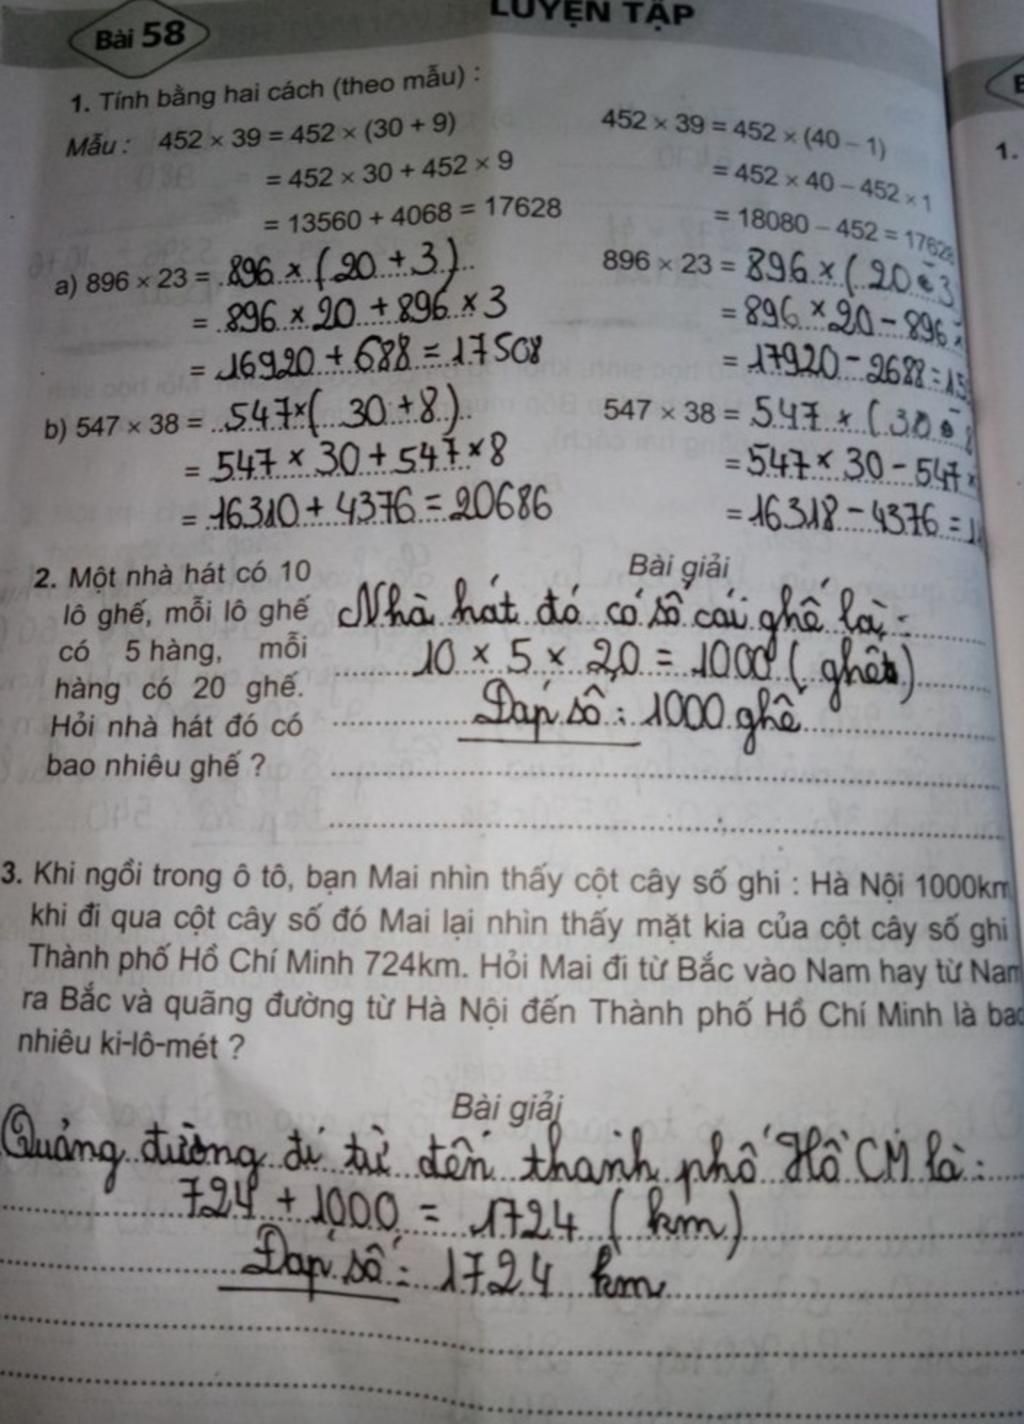 Bài 58
LUYỆN TẬP
1. Tính bằng hai cách (theo mẫu) :
Mẫu : 452 × 39 = 452 × (30 + 9)
= 452 × 30 + 452 × 9
= 13560 + 4068 = 17628
452 × 39 = 452 × (40 – 1)
= 452 × 40 – 452 × 1
= 18080 – 452 = 17628
a) 896 × 23 = 896 × (20 + 3)
= 896 × 20 + 896 × 3
= 16920 + 688 = 17508
896 × 23 = 896 × (20 - 3
= 896 × 20 - 896 ×
= 17920 - 2688 = 15
b) 547 × 38 = 547 × (30 + 8)
= 547 × 30 + 547 × 8
= 16310 + 4376 = 20686
547 × 38 = 547 × (30 -
= 547 × 30 - 547 ×
= 16318 - 4376 = 1
2. Một nhà hát có 10
lô ghế, mỗi lô ghế
có 5 hàng, mỗi
hàng có 20 ghế.
Hỏi nhà hát đó có
bao nhiêu ghế ?
Bài giải
Nhà hát đó có số cái ghế là :
10 × 5 × 20 = 1000 ( ghế )
Đáp số : 1000 ghế
3. Khi ngồi trong ô tô, bạn Mai nhìn thấy cột cây số ghi : Hà Nội 1000km
khi đi qua cột cây số đó Mai lại nhìn thấy mặt kia của cột cây số ghi
Thành phố Hồ Chí Minh 724km. Hỏi Mai đi từ Bắc vào Nam hay từ Nam
ra Bắc và quãng đường từ Hà Nội đến Thành phố Hồ Chí Minh là bao
nhiêu ki-lô-mét ?
Bài giải
Quảng đường đi từ đến thành phố Hồ CM là :
724 + 1000 = 1724 ( km )
Đáp số : 1724 km
1.